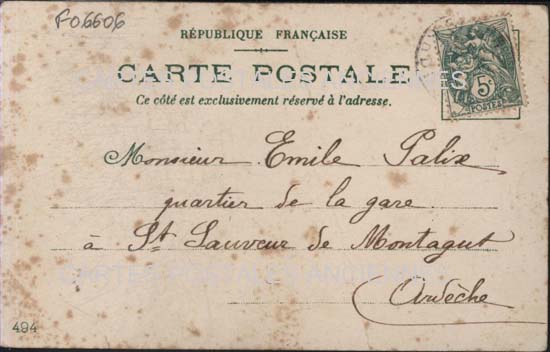 F06606
RÉPUBLIQUE FRANÇAISE
CARTE POSTALE
Ce côté est exclusivement réservé à l'adresse.
5
POSTES
Monsieur Emile Palix
quartier de la gare
à St Sauveur de Montagut
CARTES POSTALES ANCIENNES
Ardèche
494